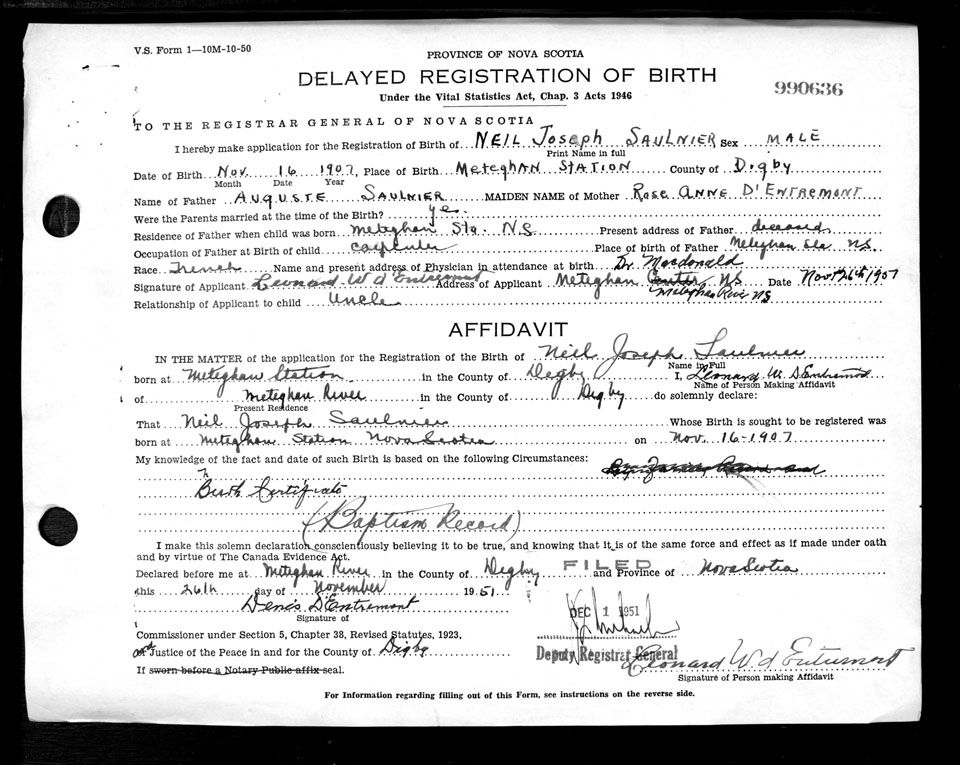 V.S. Form 1—10M-10-50
PROVINCE OF NOVA SCOTIA
DELAYED REGISTRATION OF BIRTH
990636
Under the Vital Statistics Act, Chap. 3 Acts 1946
TO THE REGISTRAR GENERAL OF NOVA SCOTIA
I hereby make application for the Registration of Birth of NEIL Joseph SAULNIER Sex MALE
Print Name in full
Date of Birth Nov. 16 1907, Place of Birth MeteGHAN STATION County of Digby
Month Date Year
Name of Father AUGUSTE SAULNIER MAIDEN NAME of Mother Rose ANNE D'ENTREMONT
Were the Parents married at the time of the Birth? yes.
Residence of Father when child was born Meteghan Sta. N.S. Present address of Father deceased
Occupation of Father at Birth of child carpenter Place of birth of Father Meteghan Sta N.S.
Race French Name and present address of Physician in attendance at birth Dr Macdonald
Signature of Applicant Leonard W d'Entremont Address of Applicant Meteghan Center NS Date Nov 26th 1951
Meteghan River NS
Relationship of Applicant to child Uncle
AFFIDAVIT
IN THE MATTER of the application for the Registration of the Birth of Neil Joseph Saulnier
Name in Full
born at Meteghan Station in the County of Digby I, Leonard W. D'Entremont
Name of Person Making Affidavit
of Meteghan River in the County of Digby do solemnly declare:
Present Residence
That Neil Joseph Saulnier Whose Birth is sought to be registered was
born at Meteghan Station Nova Scotia on Nov. 16-1907
My knowledge of the fact and date of such Birth is based on the following Circumstances:
Birth Certificate
(Baptism Record)
I make this solemn declaration conscientiously believing it to be true, and knowing that it is of the same force and effect as if made under oath
and by virtue of The Canada Evidence Act.
FILED
Declared before me at Meteghan River in the County of Digby and Province of Nova Scotia
this 26th day of November 1951
DEC 1 1951
Denis D'Entremont
Signature of
Commissioner under Section 5, Chapter 38, Revised Statutes, 1923,
or Justice of the Peace in and for the County of Digby
Deputy Registrar General
Leonard W d'Entremont
If sworn before a Notary Public affix seal.
Signature of Person making Affidavit
For Information regarding filling out of this Form, see instructions on the reverse side.